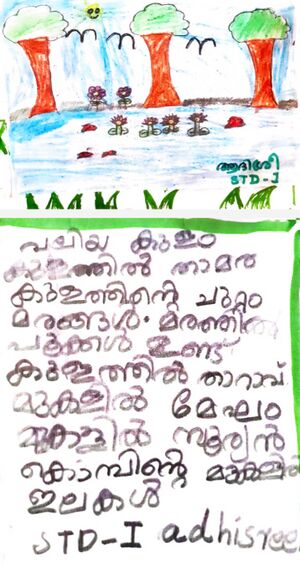 ആദിശ്രീ
STD-I
വലിയ കുളം
കുളത്തിൽ താമര
കുളത്തിന്റെ ചുറ്റും
മരങ്ങൾ. മരത്തിൽ
പൂക്കൾ ഉണ്ട്
കുളത്തിൽ താറാവ്
മുകളിൽ മേഘം
മുകളിൽ സൂര്യൻ
കൊമ്പിന്റെ മുകളിൽ
ഇലകൾ
STD-I adhisree